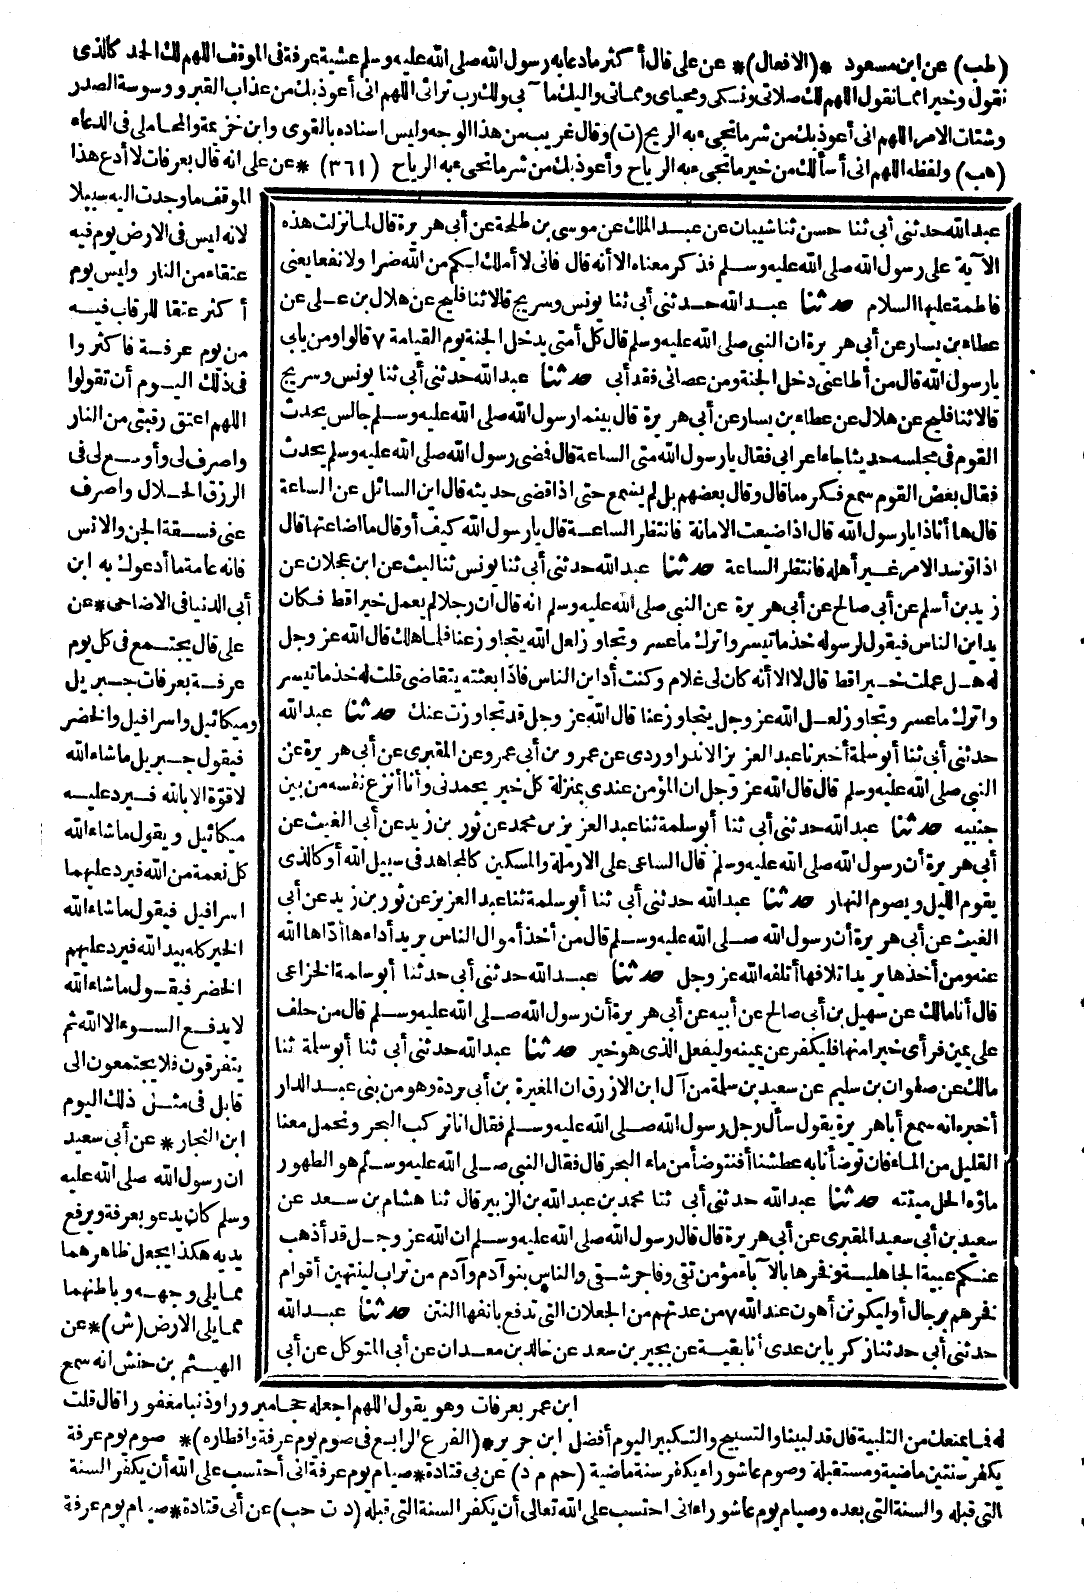 (طب) عن ابن مسعود *(الافعال)* عن على قال أكثر ما دعا به رسول الله صلى الله عليه وسلم عشية عرفة فى الموقف اللهم لك الحمد كالذى
نقول وخيرا مما نقول اللهم لك صلاتى ونسكى ومحياى ومماتى واليك مآبى ولك رب تراثى اللهم انى أعوذ بك من عذاب القبر ووسوسة الصدر
وشتات الامر اللهم انى أعوذ بك من شر ما تجىء به الريح (ت) وقال غريب من هذا الوجه وليس اسناده بالقوى وابن خزيمة والمحاملى فى الدعاء
(هب) ولفظه اللهم انى أسألك من خير ما تجىء به الرياح وأعوذ بك من شر ما تجىء به الرياح (٣٦١) * عن على انه قال بعرفات لا أدع هذا
الموقف ما وجدت اليه سبيلا
لانه ليس فى الارض يوم فيه
عتقاء من النار وليس يوم
أكثر عتقا للرقاب فيه
من يوم عرفة فاكثروا
فى ذلك اليوم أن تقولوا
اللهم اعتق رقبتى من النار
واصرف لى وأوسع لى فى
الرزق الحلال واصرف
عنى فسقة الجن والانس
فانه عامة ما أدعوك به ابن
أبى الدنيا فى الاضاحى * عن
على قال يجتمع فى كل يوم
عرفة بعرفات جبريل
وميكائيل واسرافيل والخضر
فيقول جبريل ماشاء الله
لا قوة الا بالله فيرد عليه
ميكائيل ويقول ماشاء الله
كل نعمة من الله فيرد عليهما
اسرافيل فيقول ماشاء الله
الخير كله بيد الله فيرد عليهم
الخضر فيقول ماشاء الله
لا يدفع السوء الا الله ثم
يتفرقون فلا يجتمعون الى
قابل فى مثل ذلك اليوم
ابن النجار * عن أبى سعيد
ان رسول الله صلى الله عليه
وسلم كان يدعو بعرفة ويرفع
يديه هكذا يجعل ظاهرهما
مما يلى وجهه وباطنهما
مما يلى الارض (ش) * عن
الهيثم بن حنش انه سمع
عبد الله حدثنى أبى ثنا حسن ثنا شيبان عن عبد الملك عن موسى بن طلحة عن أبى هريرة قال لما نزلت هذه
الآية على رسول الله صلى الله عليه وسلم فذكر معناه الا أنه قال فانى لا أملك لكم من الله ضرا ولا نفعا يعنى
فاطمة عليها السلام حدثنا عبد الله حدثنى أبى ثنا يونس وسريج قالا ثنا فليح عن هلال بن على عن
عطاء بن يسار عن أبى هريرة ان النبى صلى الله عليه وسلم قال كل أمتى يدخل الجنة يوم القيامة ٧ قالوا ومن يابى
يارسول الله قال من أطاعنى دخل الجنة ومن عصانى فقد أبى حدثنا عبد الله حدثنى أبى ثنا يونس وسريج
قالا ثنا فليح عن هلال عن عطاء بن يسار عن أبى هريرة قال بينما رسول الله صلى الله عليه وسلم جالس يحدث
القوم فى مجلسه حديثا جاء اعرابى فقال يارسول الله متى الساعة قال فمضى رسول الله صلى الله عليه وسلم يحدث
فقال بعض القوم سمع فكره ما قال وقال بعضهم بل لم يسمع حتى اذا قضى حديثه قال اين السائل عن الساعة
قال ها أنا ذا يارسول الله قال اذا ضيعت الامانة فانتظر الساعة قال يارسول الله كيف أو قال ما اضاعتها قال
اذا توسد الامر غير أهله فانتظر الساعة حدثنا عبد الله حدثنى أبى ثنا يونس ثنا ليث عن ابن عجلان عن
زيد بن أسلم عن أبى صالح عن أبى هريرة عن النبى صلى الله عليه وسلم انه قال ان رجلا لم يعمل خيرا قط فكان
يداين الناس فيقول لرسوله خذ ما تيسر واترك ما عسر وتجاوز لعل الله يتجاوز عنا فلما هلك قال الله عز وجل
له هل عملت خيرا قط قال لا الا أنه كان لى غلام وكنت أداين الناس فاذا بعثته يتقاضى قلت له خذ ما تيسر
واترك ما عسر وتجاوز لعل الله عز وجل يتجاوز عنا قال الله عز وجل قد تجاوزت عنك حدثنا عبد الله
حدثنى أبى ثنا أبو سلمة أخبرنا عبد العزيز الاندراوردى عن عمرو بن أبى عمرو عن المقبرى عن أبى هريرة عن
النبى صلى الله عليه وسلم قال قال الله عز وجل ان المؤمن عندى بمنزلة كل خير يحمدنى وأنا أنزع نفسه من بين
جنبيه حدثنا عبد الله حدثنى أبى ثنا أبو سلمة ثنا عبد العزيز بن محمد عن ثور بن زيد عن أبى الغيث عن
أبى هريرة أن رسول الله صلى الله عليه وسلم قال الساعى على الارملة والمسكين كالمجاهد فى سبيل الله أو كالذى
يقوم الليل ويصوم النهار حدثنا عبد الله حدثنى أبى ثنا أبو سلمة ثنا عبد العزيز عن ثور بن زيد عن أبى
الغيث عن أبى هريرة أن رسول الله صلى الله عليه وسلم قال من أخذ أموال الناس يريد أداءها أداها الله
عنه ومن أخذها يريد اتلافها أتلفه الله عز وجل حدثنا عبد الله حدثنى أبى حدثنا أبو سلمة الخزاعى
قال أنا مالك عن سهيل بن أبى صالح عن أبيه عن أبى هريرة أن رسول الله صلى الله عليه وسلم قال من حلف
على يمين فرأى خيرا منها فليكفر عن يمينه وليفعل الذى هو خير حدثنا عبد الله حدثنى أبى ثنا أبو سلمة ثنا
مالك عن صفوان بن سليم عن سعيد بن سلمة من آل ابن الازرق ان المغيرة بن أبى بردة وهو من بنى عبد الدار
أخبره انه سمع أبا هريرة يقول سأل رجل رسول الله صلى الله عليه وسلم فقال انا نركب البحر ونحمل معنا
القليل من الماء فان توضأنا به عطشنا أفنتوضأ من ماء البحر قال فقال النبى صلى الله عليه وسلم هو الطهور
ماؤه الحل ميتته حدثنا عبد الله حدثنى أبى ثنا محمد بن عبد الله بن الزبير قال ثنا هشام بن سعد عن
سعيد بن أبى سعيد المقبرى عن أبى هريرة قال قال رسول الله صلى الله عليه وسلم ان الله عز وجل قد أذهب
عنكم عبية الجاهلية وفخرها بالآباء مؤمن تقى وفاجر شقى والناس بنو آدم وآدم من تراب لينتهين أقوام
فخرهم برجال أو ليكونن أهون عند الله ٧ من عدتهم من الجعلان التى تدفع بانفها النتن حدثنا عبد الله
حدثنى أبى حدثنا زكريا بن عدى أنا بقية عن بحير بن سعد عن خالد بن معدان عن أبى المتوكل عن أبى
ابن عمر بعرفات وهو يقول اللهم اجعله حجا مبرورا وذنبا مغفورا قال قلت
له فما يمنعك من التلبية قال قد لبينا والتسبيح والتكبير اليوم أفضل ابن جرير * (الفرع الرابع فى صوم يوم عرفة وافطاره) * صوم يوم عرفة
يكفر سنتين ماضية ومستقبلة وصوم عاشوراء يكفر سنة ماضية (حم م د) عن أبى قتادة * صيام يوم عرفة انى أحتسب على الله أن يكفر السنة
التى قبله والسنة التى بعده وصيام يوم عاشوراء انى احتسب على الله تعالى أن يكفر السنة التى قبله (د ت حب) عن أبى قتادة * صيام يوم عرفة